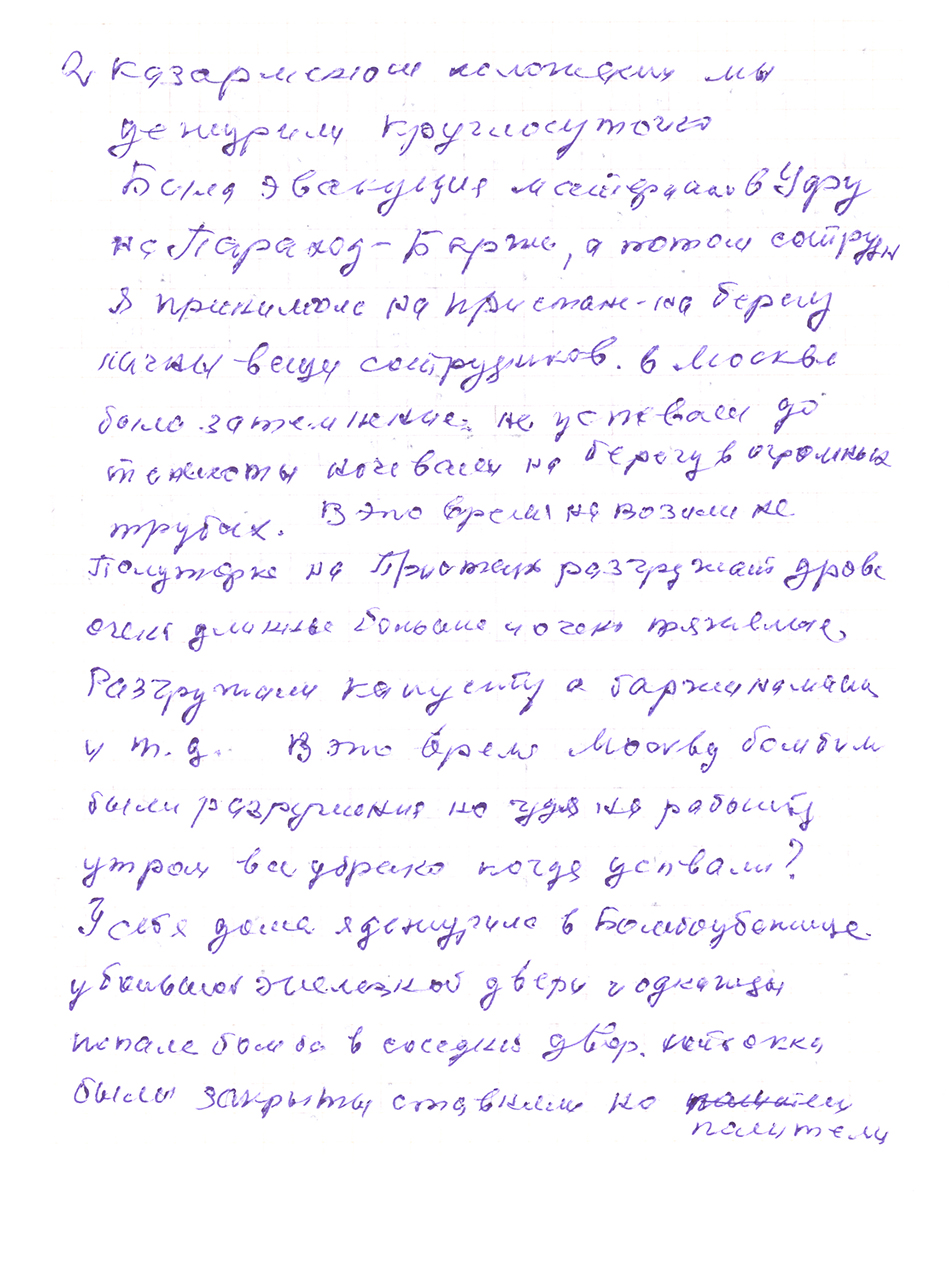 2, казарменном положении мы
дежурили круглосуточно
Была эвакуция материалов в Уфу
на Параход-Баржи, а потом сотрудн
Я принимала на пристане-на берегу
личны вещи сотрудников. в Москве
было затемнение; не успевали до
темноты ночевали на берегу в огромных
трубах. В это время на возили на
Полуторке на Пристань разгружать дрова
очень длинные большие и очень тяжелые,
Разгружали капусту с баржи
и т.д. В это время Москву бомбили
были разрушения но чудя на работу
утром все убрано когда успвали?
У себя дома я дежурила в Бомбоубежище
у бывшой железной двери и однажды
попала бомба в соседний двор.
были закрыты ставнями но
полители